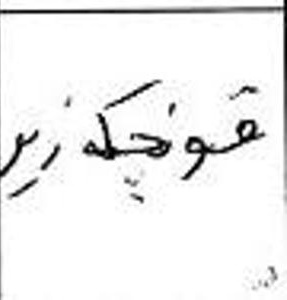 قونچکه زیر